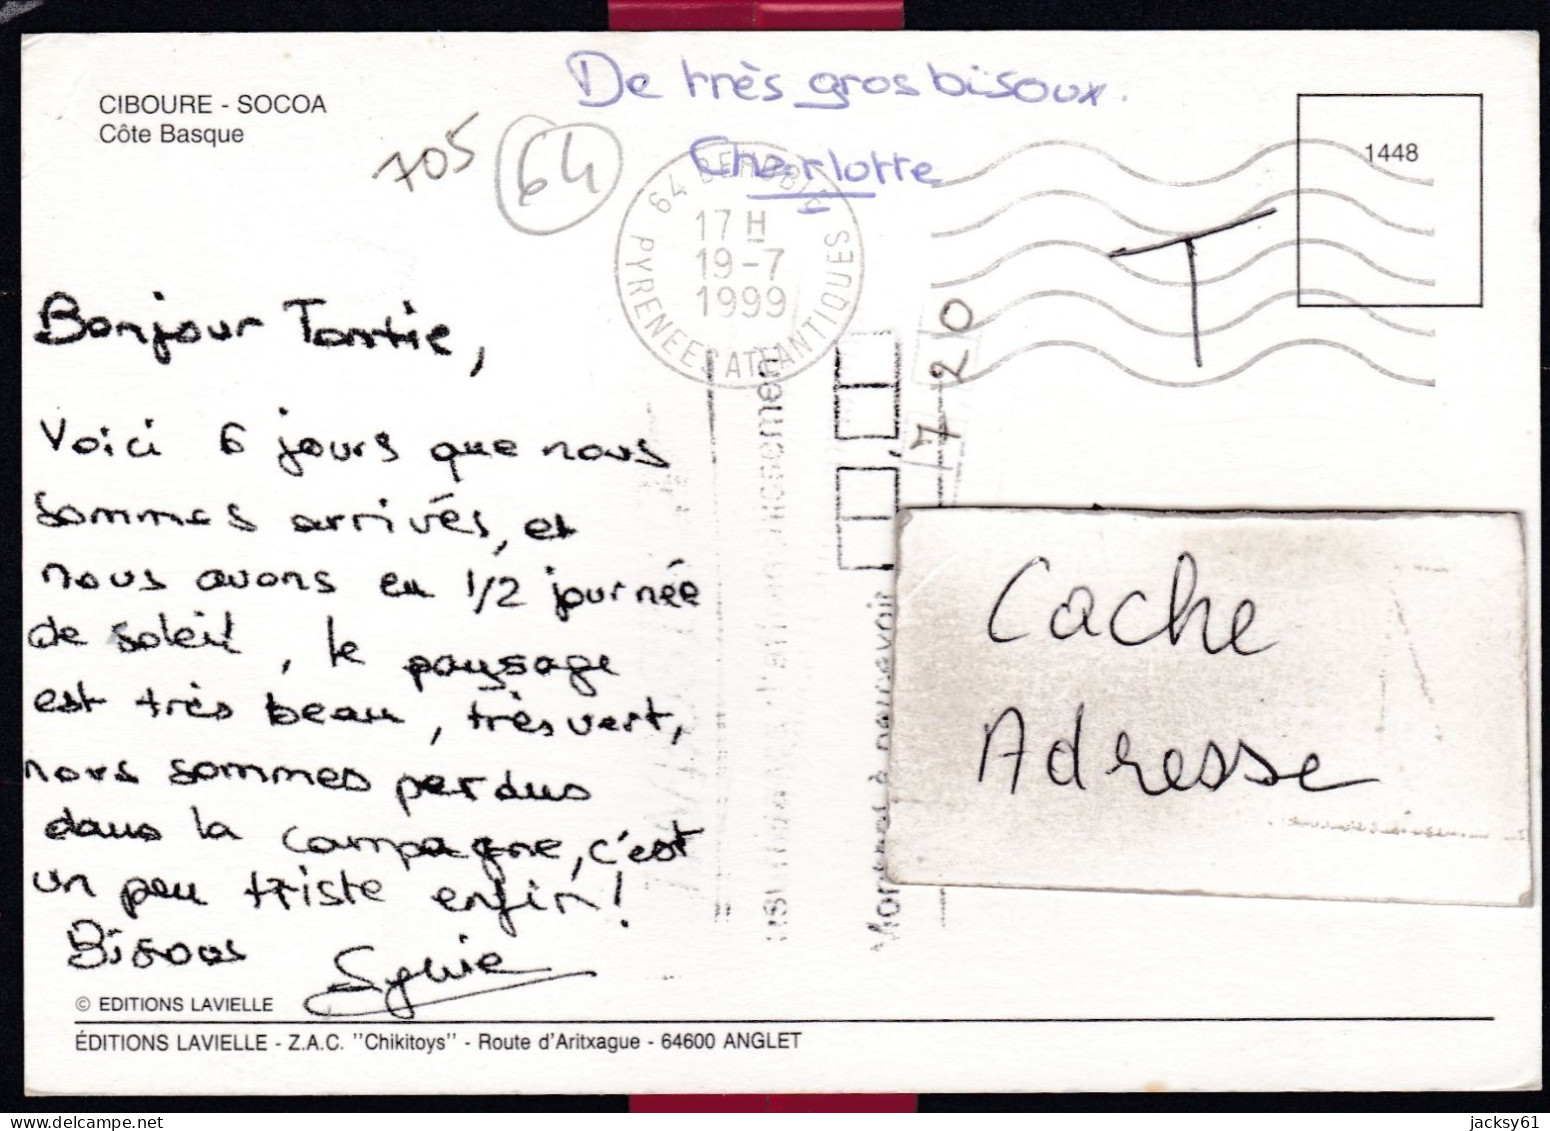 De très gros bisoux.
Charlotte
CIBOURE - SOCOA
Côte Basque
705
64
1448
64 BEHOBIE
17 H
19-7
1999
PYRENEES ATLANTIQUES
T
,7-20
Bonjour Tantie,
Voici 6 jours que nous
sommes arrivés, et
nous avons eu 1/2 journée
de soleil, le paysage
est très beau, très vert,
nous sommes perdus
dans la campagne, c'est
un peu triste enfin!
Bisous Sylvie
Cache
Adresse
© EDITIONS LAVIELLE
ÉDITIONS LAVIELLE - Z.A.C. "Chikitoys" - Route d'Aritxague - 64600 ANGLET
jacksy61